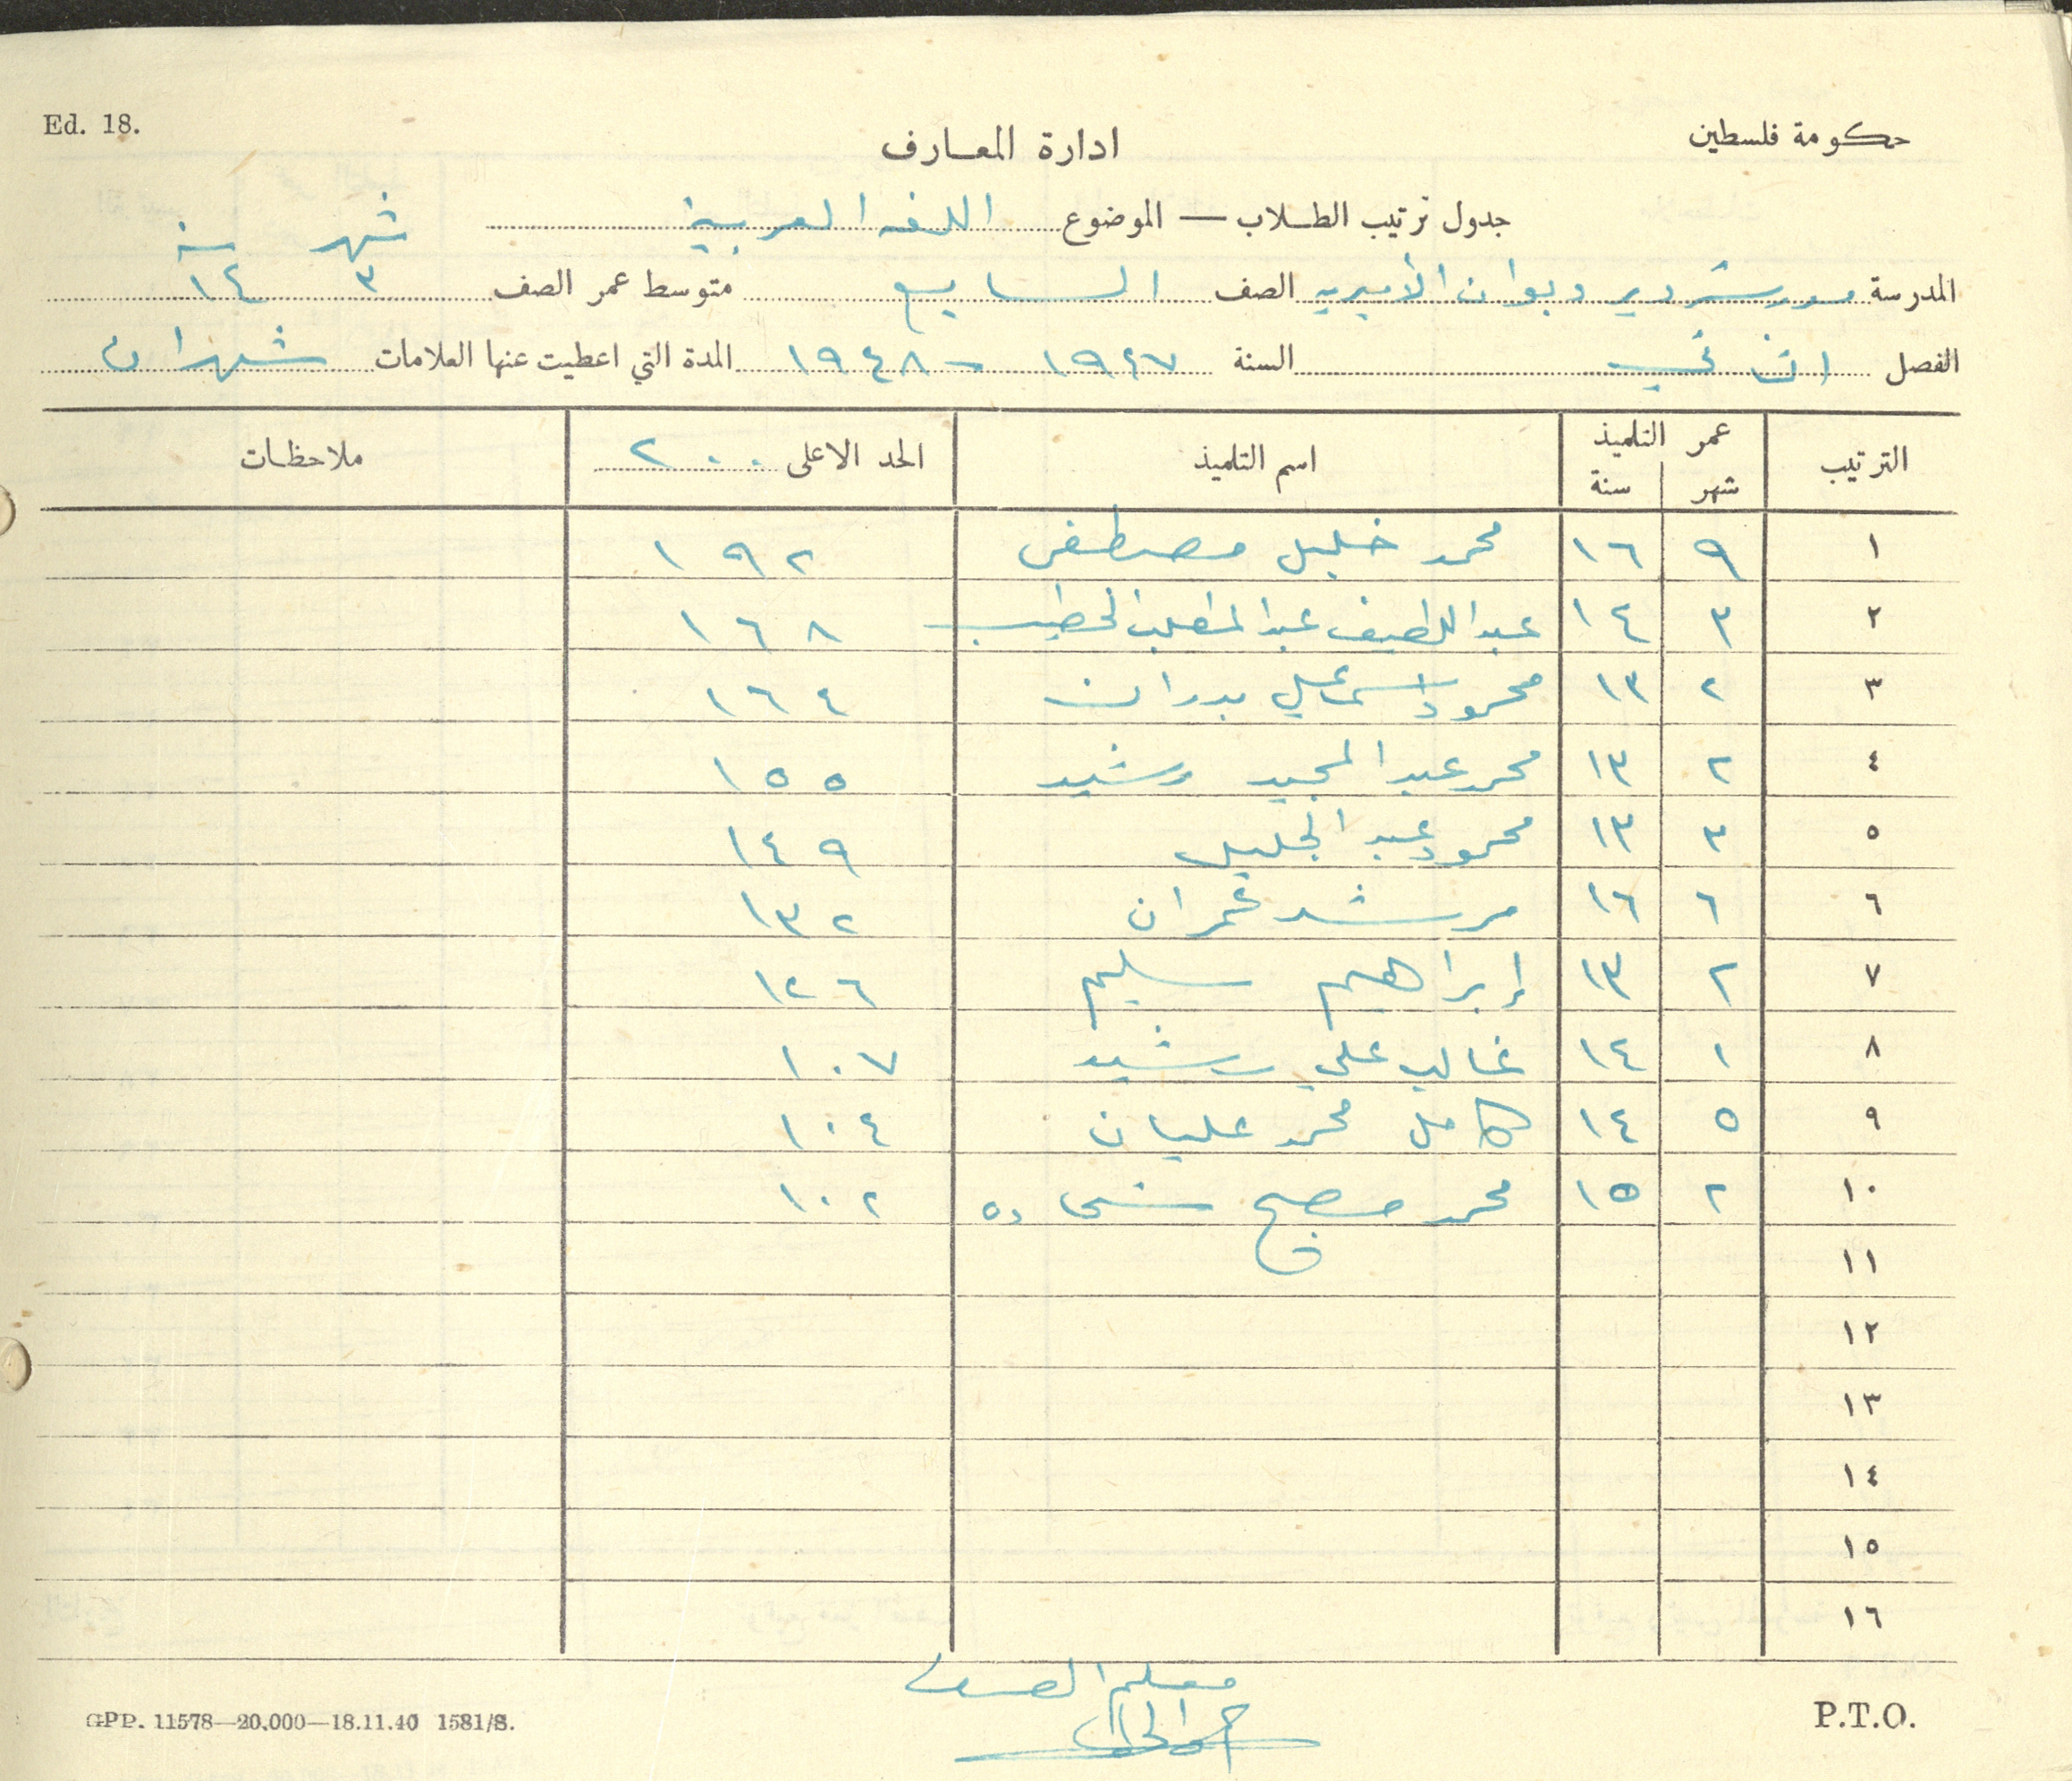 Ed. 18.
حكومة فلسطين
ادارة المعارف
جدول ترتيب الطلاب — الموضوع اللغه العربية
شهر سنة
المدرسة دير ديوان الأميريه الصف السابع متوسط عمر الصف ٣ ١٤
الفصل الثاني السنة ١٩٤٧ - ١٩٤٨ المدة التي اعطيت عنها العلامات شهران
الترتيب عمر التلميذ اسم التلميذ الحد الاعلى ٢٠٠ ملاحظات
شهر سنة
١ ٩ ١٦ محمد خليل مصطفى ١٩٢
٢ ٣ ١٤ عبد اللطيف عبد المطلب الخطيب ١٦٨
٣ ٢ ١٣ محمود اسماعيل بدران ١٦٤
٤ ٢ ١٣ محمد عبد المجيد رشيد ١٥٥
٥ ٣ ١٣ محمود عبد الجليل ١٤٩
٦ ٦ ١٦ مرشد عمران ١٣٢
٧ ٢ ١٣ إبراهيم سليم ١٢٦
٨ ١ ١٤ غالب علي رشيد ١٠٧
٩ ٥ ١٤ كامل محمد عليان ١٠٤
١٠ ٢ ١٥ محمد مصلح شحاده ١٠٢
١١
١٢
١٣
١٤
١٥
١٦
معلم الصف
GPP. 11578—20.000—18.11.40 1581/S.
P.T.O.